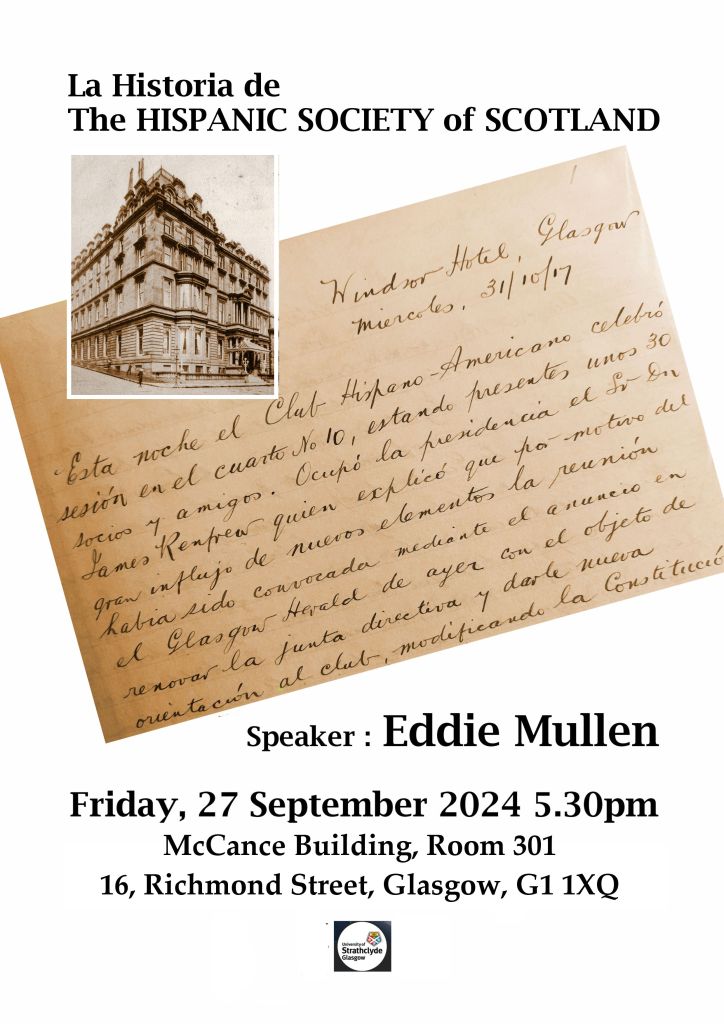 La Historia de
The HISPANIC SOCIETY of SCOTLAND
1
Windsor Hotel, Glasgow
Miercoles, 31/10/17
"Esta noche el Club Hispano-Americano celebró
sesión en el cuarto No 10, estando presentes unos 30
socios y amigos. Ocupó la presidencia el Sr Dn
James Renfrew quien explicó que por motivo del
gran influjo de nuevos elementos la reunión
habia sido convocada mediante el anuncio en
el Glasgow Herald de ayer con el objeto de
renovar la junta directiva y darle nueva
orientación al club, modificando la Constitució
Speaker : Eddie Mullen
Friday, 27 September 2024 5.30pm
McCance Building, Room 301
16, Richmond Street, Glasgow, G1 1XQ
University of
Strathclyde
Glasgow